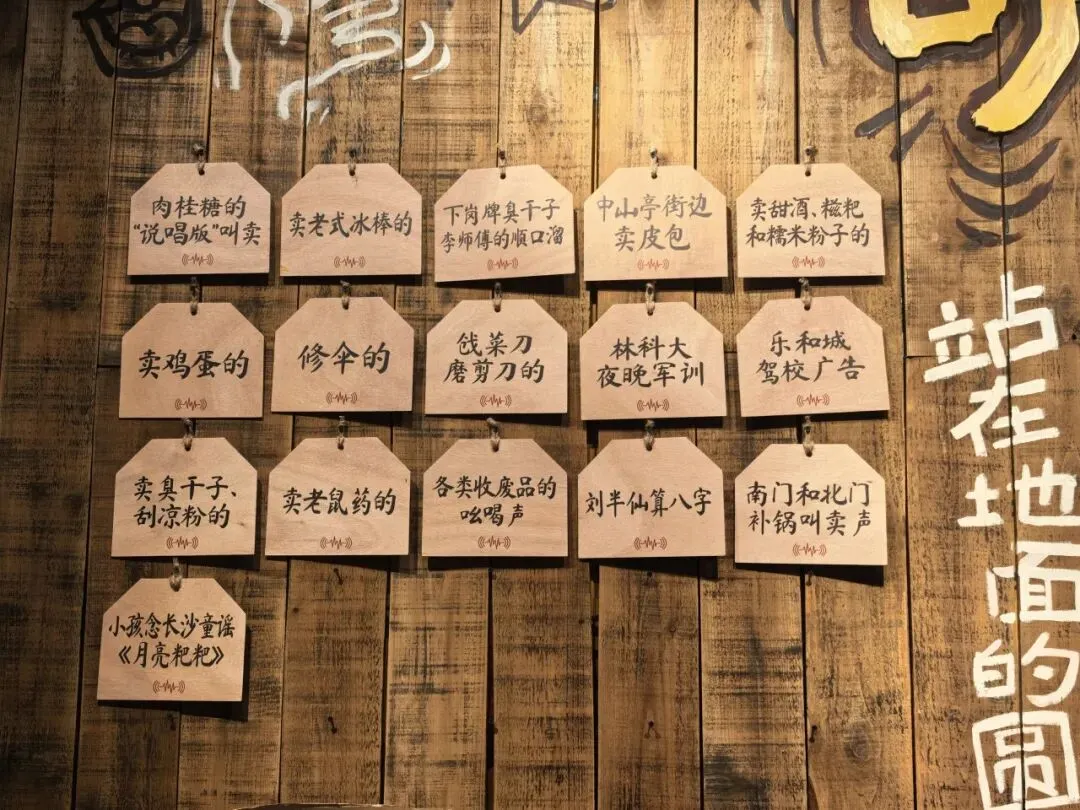 肉桂糖的
“说唱版”叫卖
卖老式冰棒的
下岗牌臭干子
李师傅的顺口溜
中山亭街边
卖皮包
卖甜酒、糍粑
和糯米粉子的
卖鸡蛋的
修伞的
戗菜刀
磨剪刀的
林科大
夜晚军训
乐和城
驾校广告
卖臭干子、
刮凉粉的
卖老鼠药的
各类收废品的
吆喝声
刘半仙算八字
南门和北门
补锅叫卖声
小孩念长沙童谣
《月亮粑粑》
站在地面的圆